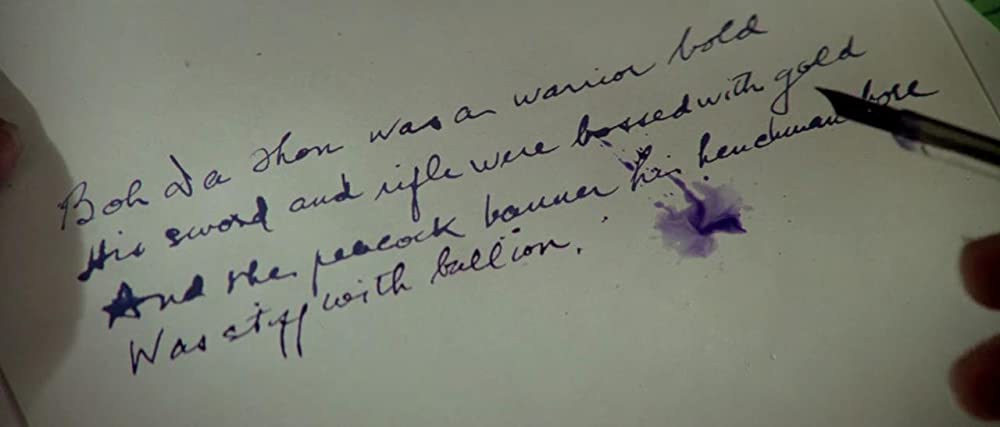 Boh Da Thon was a warrior bold
His sword and rifle were bossed with gold
And the peacock banner his henchman bore
Was stiff with bullion.